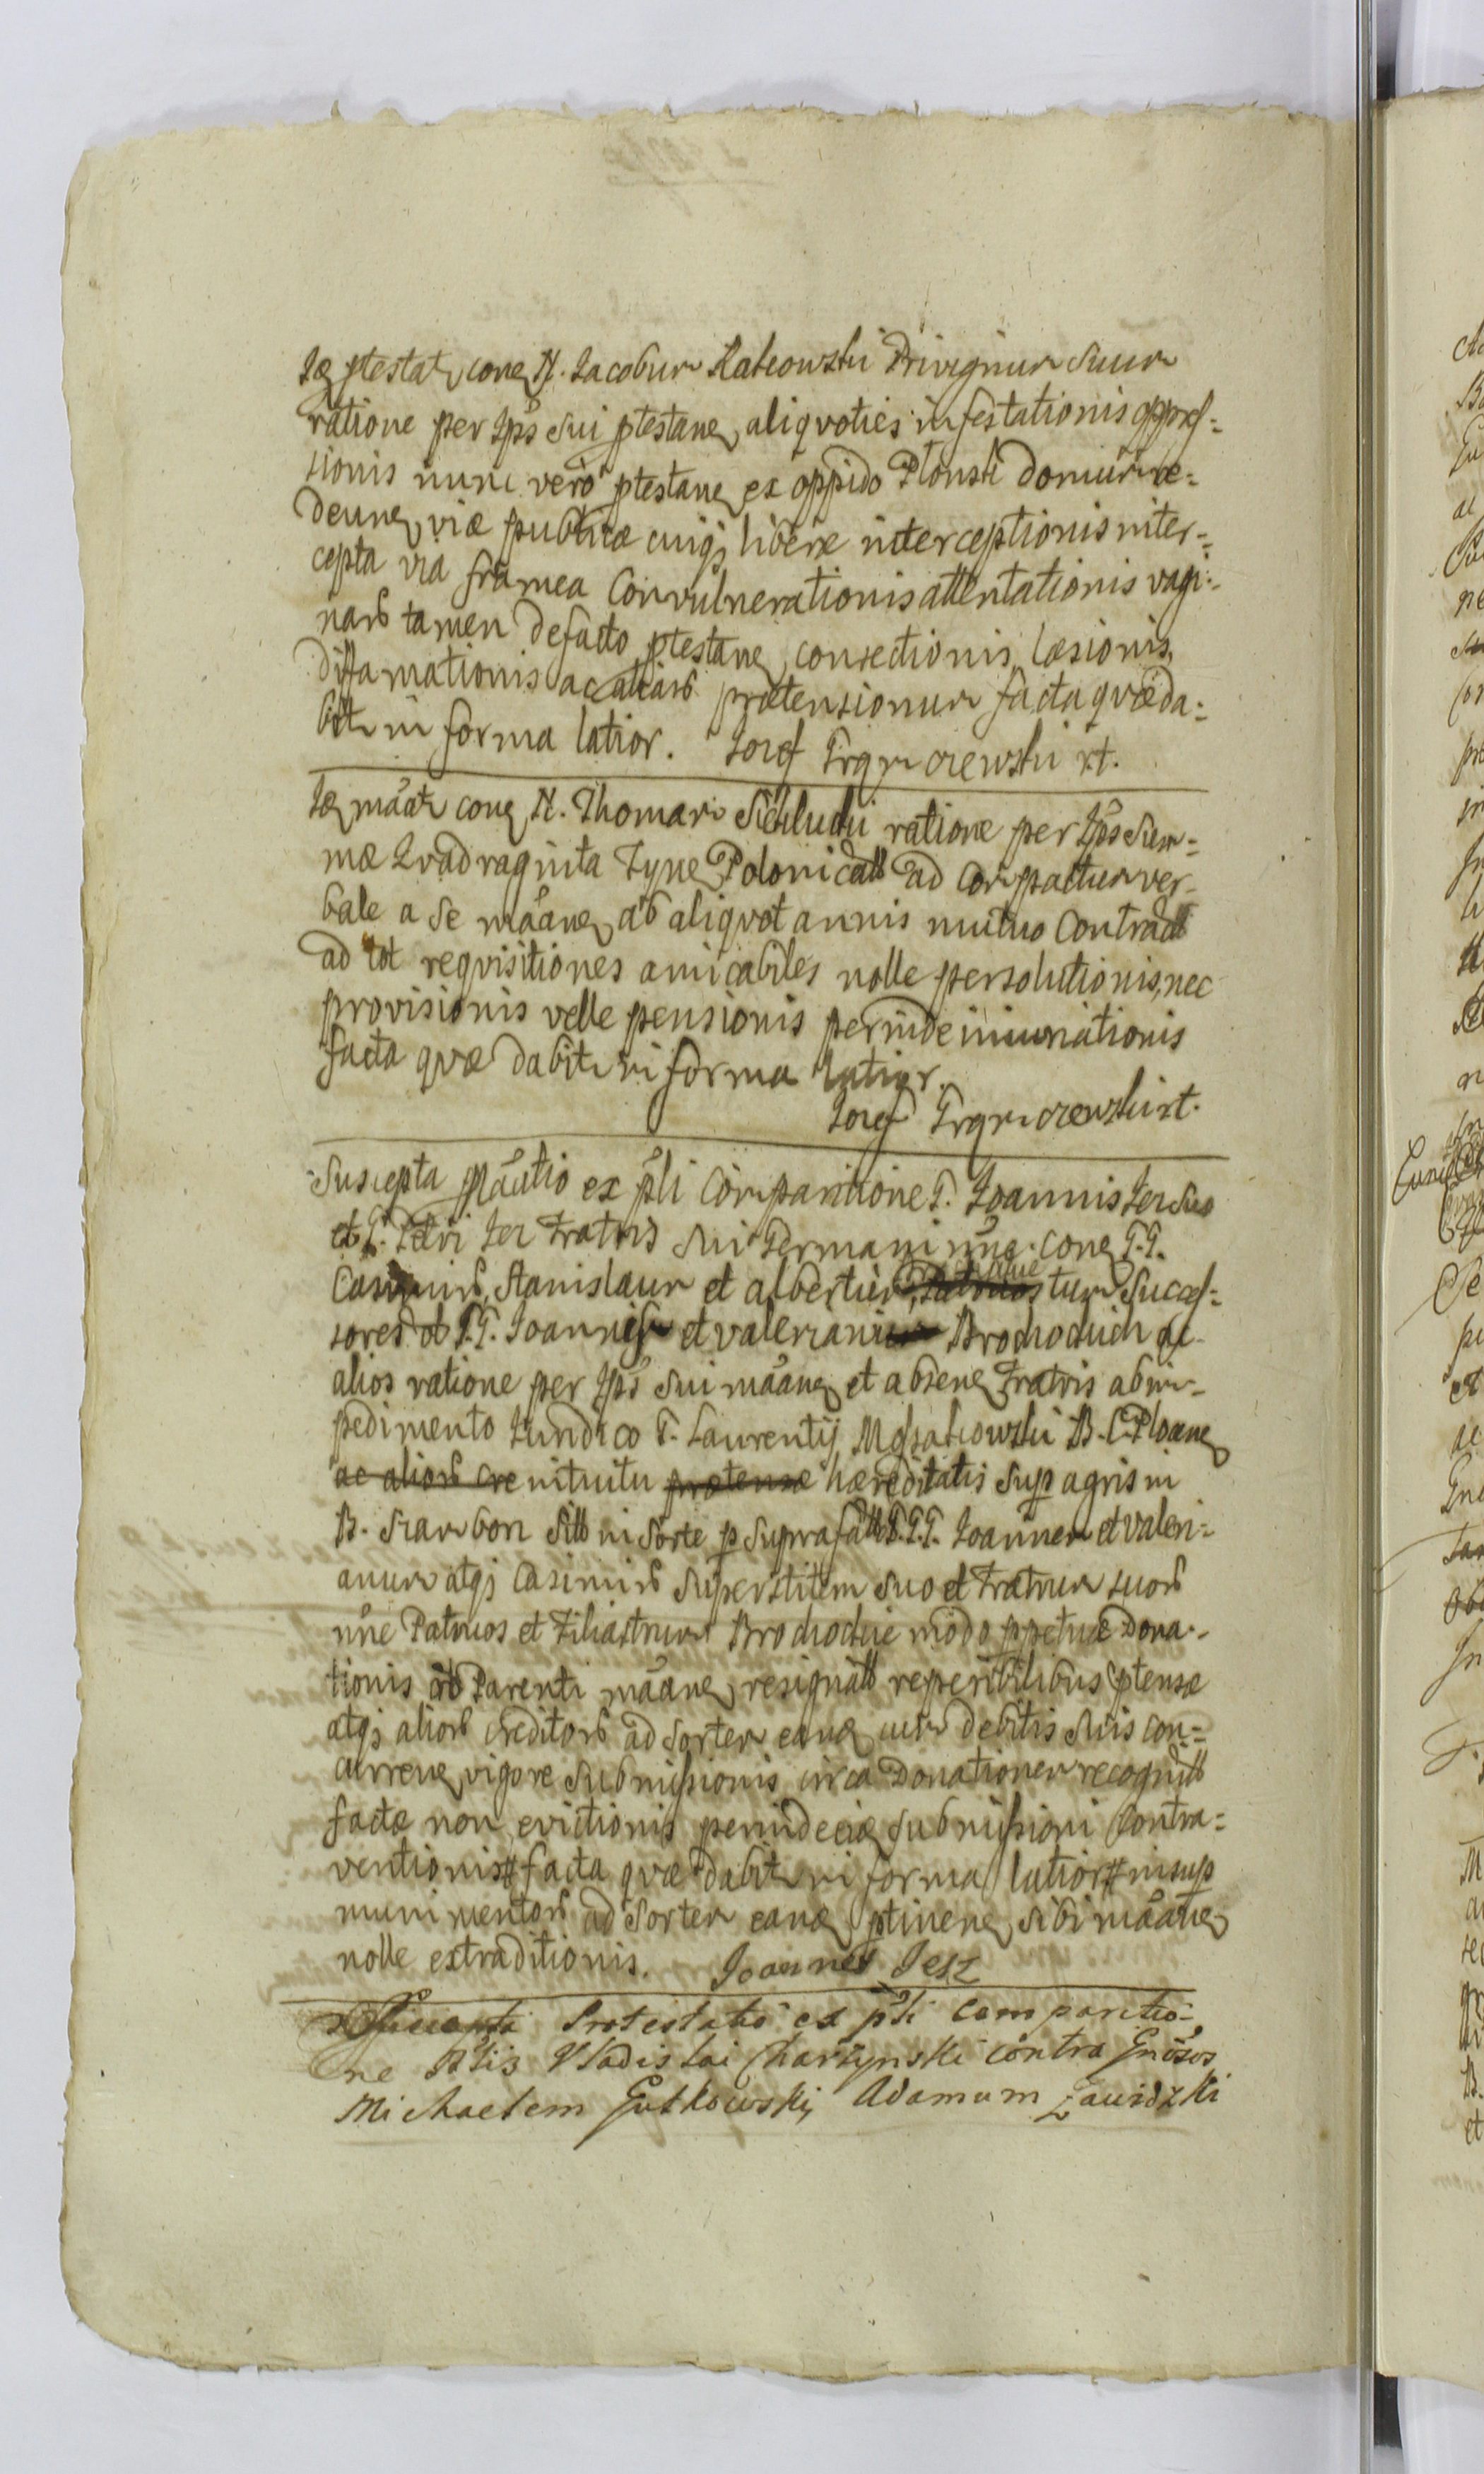 ptestatr cone N. Jacobum Rakowski Privignum Suum
ratione per Ips sui ptestane aliqvoties infestationis oppres=
sionis nunc verò ptestane ex oppido Płonsk domum re=
deune viæ publicæ cuiqj liberæ interceptionis inter=
cepta via framea Convulnerationis attentationis vagi=
tamen defacto ptestane consectionis læsionis,
diffamationis ac aliarb prætensionum facta qvæ da=
bitr in forma latior. Jozef mt.
maatr cone N. Thomam ratione per Ips Sum=
mæ Qvadraginta Tyne ad Compactum ver=
bale a se mãane ab aliqvot annis mutuo Contract
ad tot reqvisitiones amicabiles nolle persolutionis, nec
provisionis velle pensionis perinde iniuriationis
facta qvæ dabitr in forma latior.
Jozef mt.
Suscepta ex pli Comparitione G. Joannis Jer suo
et G. Petri Jer Fratris sui Germani nne. cone G.G.
Stanislaum et albertum, tum Succes=
sores G.G. Joannis et valeriani Brochocich ac
alios ratione per Ips sui mãane et absene Fratris ab im=
pedimento Juridico G. Laurentij B. C. Plocane
ac aliorb cre nituitu prætensæ hæreditatis sup agris in
B. sitb in Sorte p suprafatb G.G. Joannem et valeri=
anum atqj Casimirb Superstitem suo et Fratrum suorb
nne Patruos et Filiastrum Brochockie modo ppetuæ Dona=
tionis Parenti mãane resignatb reperibilibus ptensæ
atqj aliorb creditorb ad Sortem eane cum debitis suis con=
currene vigore Submissionis circa Donationem recognitb
factæ non evictionis perinde eiæ Submissioni Contra=
ventionis # facta qvæ dabitr in forma latior # insup
munimentorb ad Sortem eane ptinene sibi mãane
nolle extraditionis. Joannes Jesz
Protestatio ex pti Comparitio=
ne Vladislai Charzynski contra Gnosos
Michaelem Gutkowski, Adamum Zawidzki